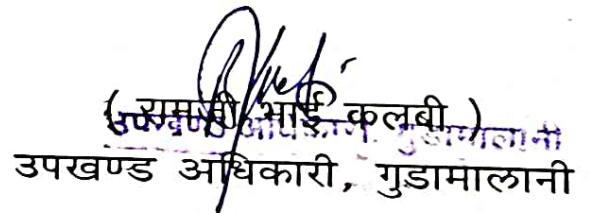 ( रामजी भाई कलबी )
उपखण्ड अधिकारी गुडामालानी
उपखण्ड अधिकारी, गुडामालानी